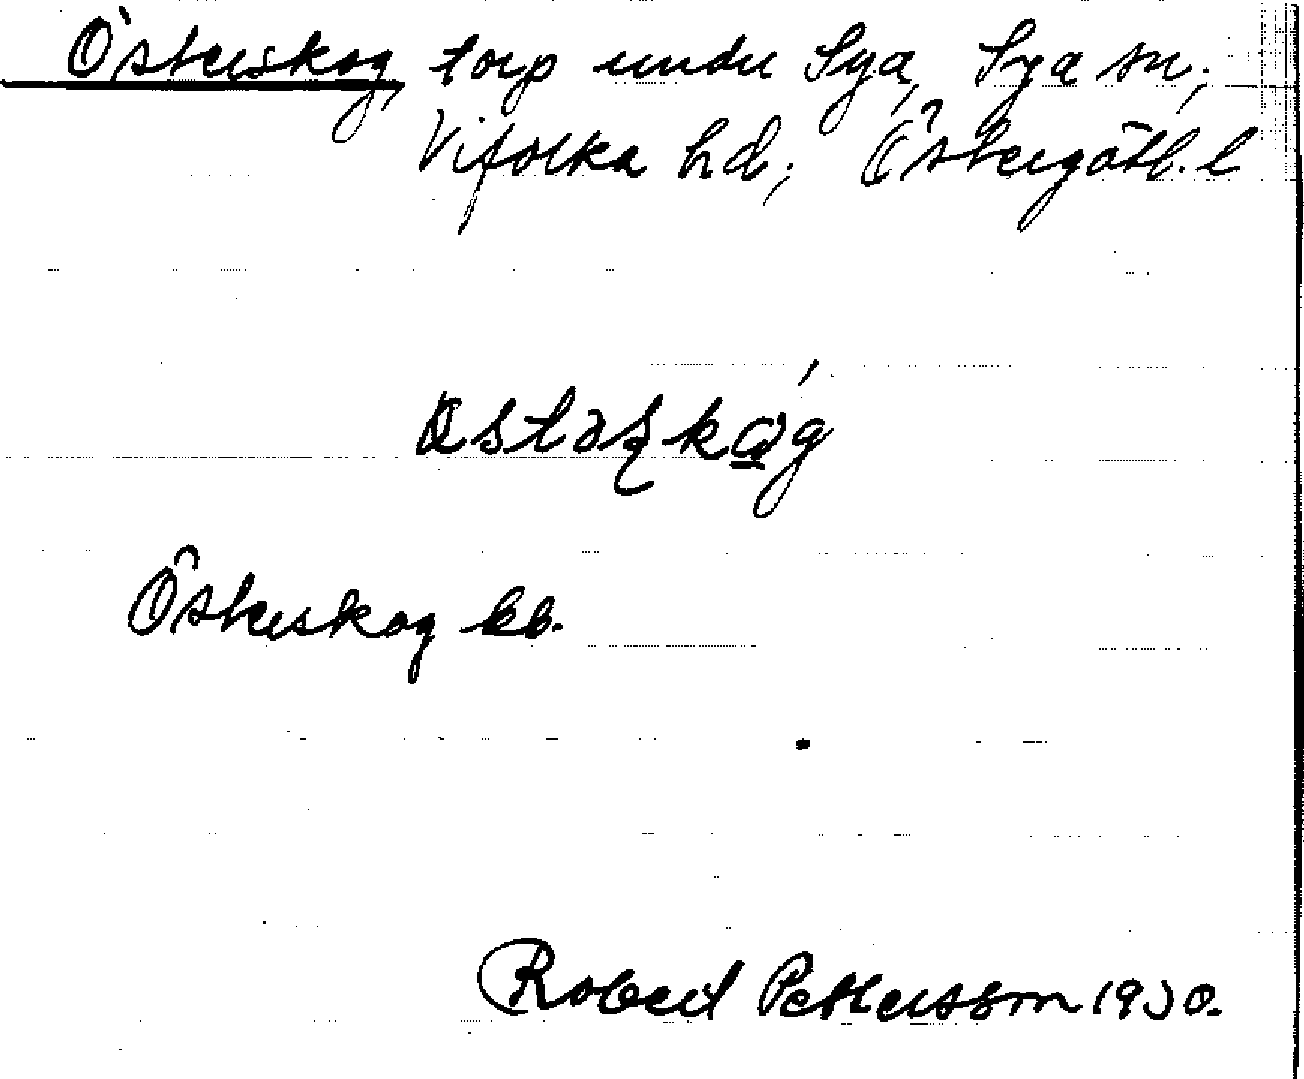 Österskog, torp under Sya, Sya sn,
Vifolka hd; Östergötl. l
Österskog kb.
Robert Pettersson 1930.